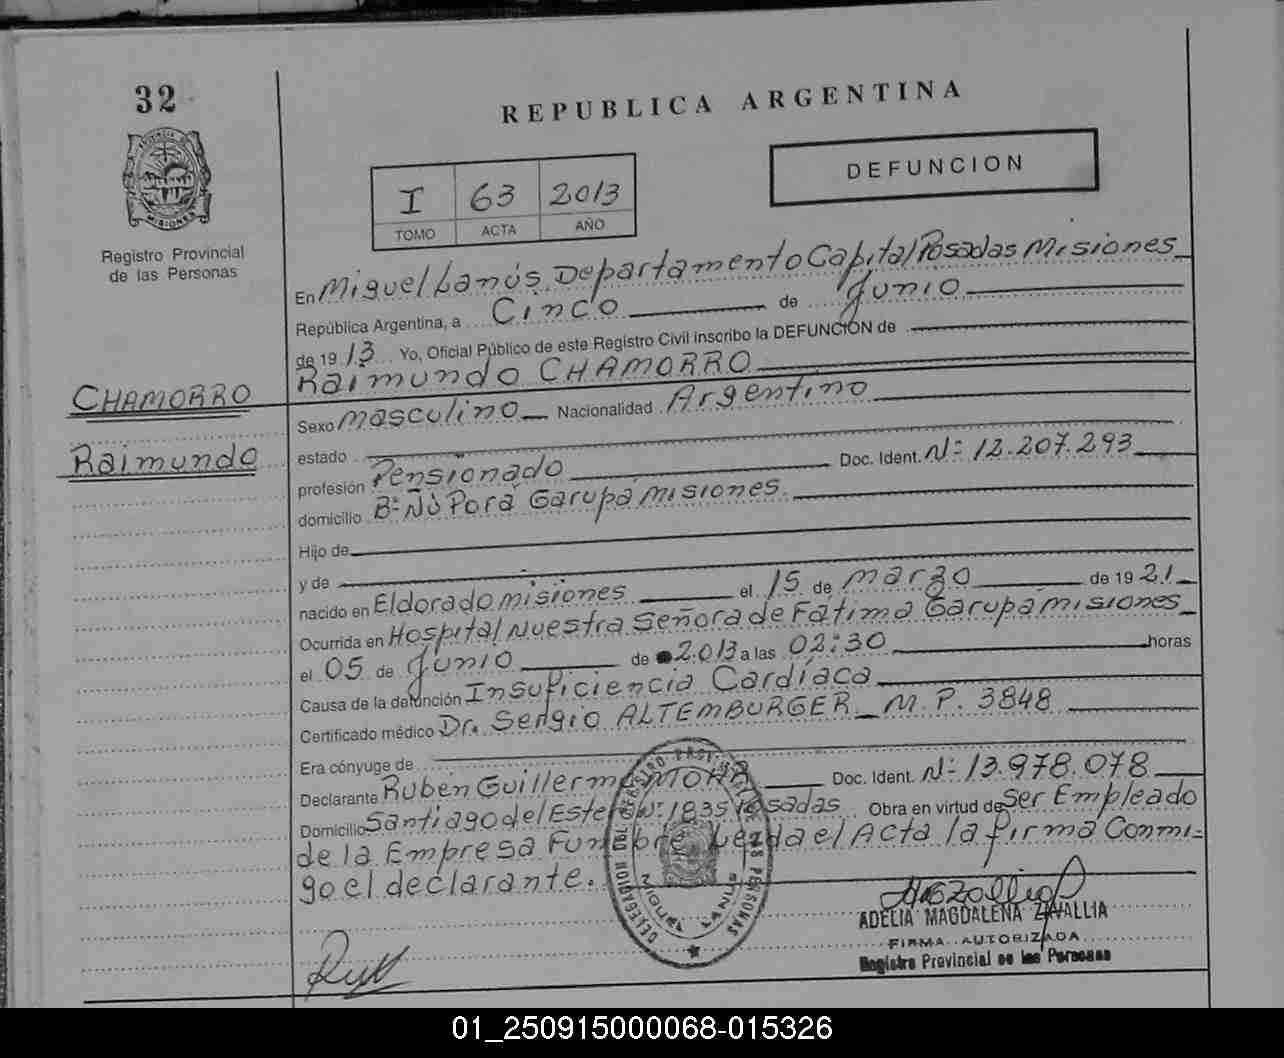 32
REPUBLICA ARGENTINA
DEFUNCION
I 63 2013
TOMO ACTA AÑO
PROVINCIA DE MISIONES
Registro Provincial
de las Personas
En Miguel Lanús Departamento Capital Posadas Misiones
República Argentina, a Cinco de Junio
de 19 13 Yo, Oficial Público de este Registro Civil inscribo la DEFUNCIÓN de
CHAMORRO Raimundo CHAMORRO
Sexo masculino Nacionalidad Argentino
Raimundo
estado
profesión Pensionado Doc. Ident. Nº 12.207.293
domicilio Bº Ñu Porá Garupá Misiones
Hijo de
y de
nacido en Eldorado Misiones el 15 de marzo de 19 21
Ocurrida en Hospital Nuestra Señora de Fátima Garupá Misiones
el 05 de Junio de 2013 a las 02:30 horas
Causa de la defunción Insuficiencia Cardíaca
Certificado médico Dr. Sergio ALTEMBURGER M.P. 3848
Era cónyuge de
Declarante Ruben Guillermo Doc. Ident. Nº 13.978.078
Domicilio Santiago del Estero Nº 1835 Posadas Obra en virtud de Ser Empleado
de la Empresa Fúnebre Leída el Acta la firma Conmi=
go el declarante.
DELEGACION DEL REGISTRO PROVINCIAL DE LAS PERSONAS
MIGUEL LANUS
ADELIA MAGDALENA ZAVALLIA
FIRMA AUTORIZADA
Registro Provincial de las Personas
01_250915000068-015326